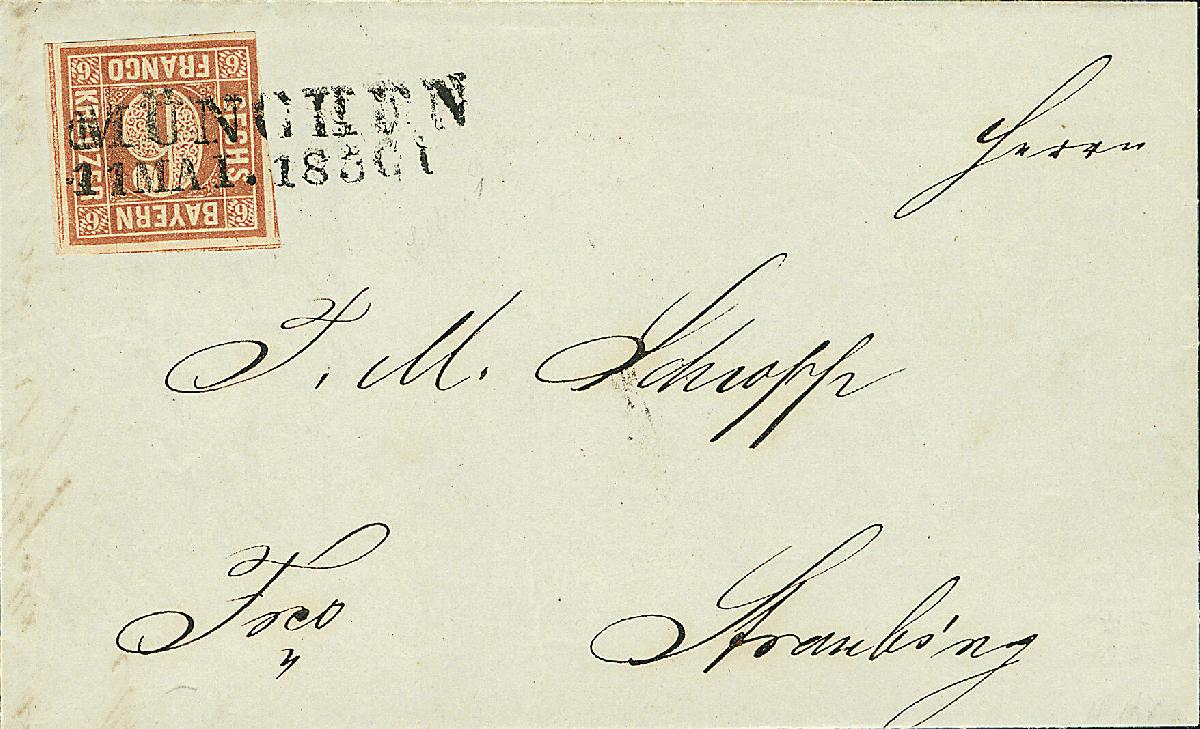 FRANCO
6 6
SECHS
KREUZER
BAYERN
6 6
MÜNCHEN
11 MAI. 1850
Herrn
J. M. Schropp
Frco
Straubing